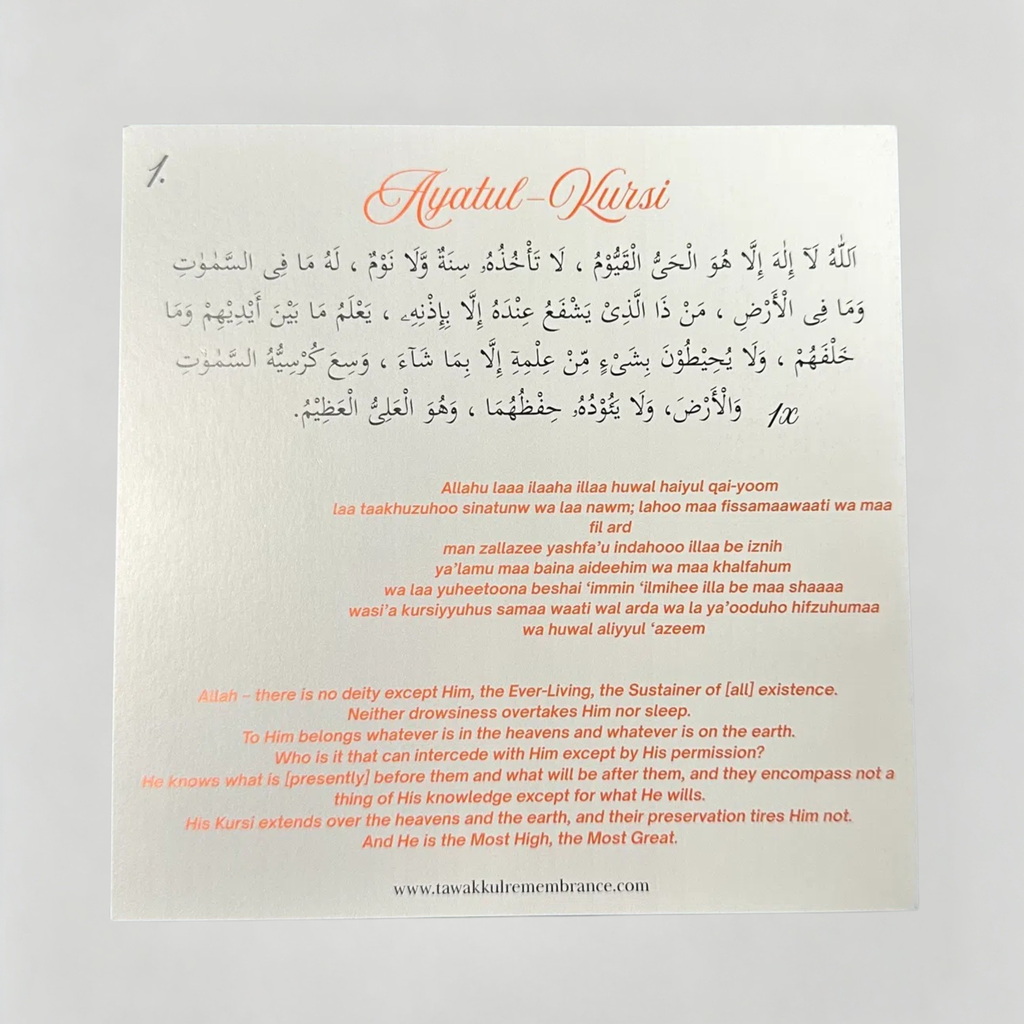 1.
Ayatul-Kursi
اَللّٰهُ لَآ إِلٰهَ إِلَّا هُوَ الْحَىُّ الْقَيُّوْمُ ، لَا تَأْخُذُهُۥ سِنَةٌ وَّلَا نَوْمٌ ، لَهُ مَا فِى السَّمٰوٰتِ
وَمَا فِى الْأَرْضِ ، مَنْ ذَا الَّذِىْ يَشْفَعُ عِنْدَهُ إِلَّا بِإِذْنِهِۦ ، يَعْلَمُ مَا بَيْنَ أَيْدِيْهِمْ وَمَا
خَلْفَهُمْ ، وَلَا يُحِيْطُوْنَ بِشَىْءٍ مِّنْ عِلْمِهِٓ إِلَّا بِمَا شَآءَ ، وَسِعَ كُرْسِيُّهُ السَّمٰوٰتِ
وَالْأَرْضَ، وَلَا يَئُوْدُهُۥ حِفْظُهُمَا ، وَهُوَ الْعَلِىُّ الْعَظِيْمُ. 1x
Allahu laaa ilaaha illaa huwal haiyul qai-yoom
laa taakhuzuhoo sinatunw wa laa nawm; lahoo maa fissamaawaati wa maa
fil ard
man zallazee yashfa'u indahooo illaa be iznih
ya'lamu maa baina aideehim wa maa khalfahum
wa laa yuheetoona beshai 'immin 'ilmihee illa be maa shaaaa
wasi'a kursiyyuhus samaa waati wal arda wa la ya'ooduho hifzuhumaa
wa huwal aliyyul 'azeem
Allah – there is no deity except Him, the Ever-Living, the Sustainer of [all] existence.
Neither drowsiness overtakes Him nor sleep.
To Him belongs whatever is in the heavens and whatever is on the earth.
Who is it that can intercede with Him except by His permission?
He knows what is [presently] before them and what will be after them, and they encompass not a
thing of His knowledge except for what He wills.
His Kursi extends over the heavens and the earth, and their preservation tires Him not.
And He is the Most High, the Most Great.
www.tawakkulremembrance.com